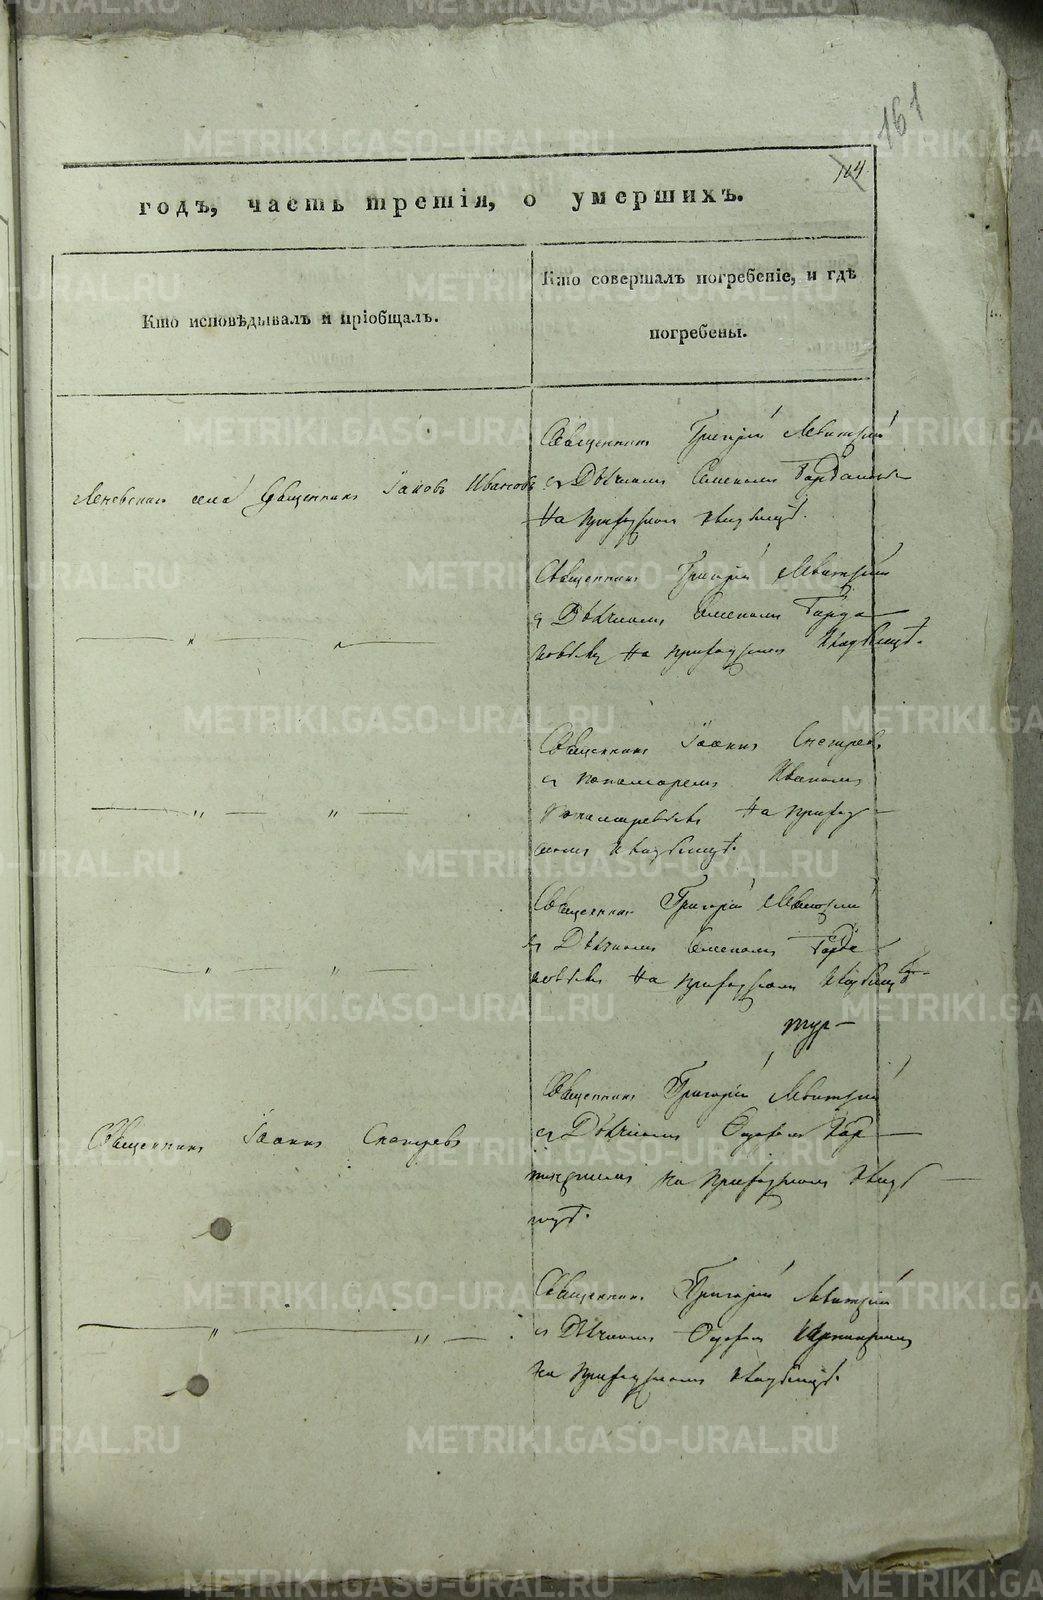 161
104
годъ, часть третія, о умершихъ.
Кто исповѣдывалъ и пріобщалъ.
Кто совершалъ погребеніе, и гдѣ
погребены.
Священникъ Григорій Левитскій
села Священникъ Іаковъ Ивановъ
съ Дьячкомъ Семеномъ
На приходскомъ кладбищѣ.
Священникъ Григорій Левитскій
съ Дьячкомъ Семеномъ
на приходскомъ кладбищѣ.
Священникъ Іоаннъ Снегиревъ
съ пономаремъ Иваномъ
на приход
скомъ кладбищѣ.
Священникъ Григорій Левитскій
съ Дьячкомъ Семеномъ
на приходскомъ кладбищѣ
Священникъ Григорій Левитскій
Священникъ Іоаннъ Снегиревъ
съ Дьячкомъ Федоромъ
на приходскомъ кладб
ищѣ.
Священникъ Григорій Левитскій
съ Дьячкомъ Федоромъ
на приходскомъ кладбищѣ.
METRIKI.GASO-URAL.RU